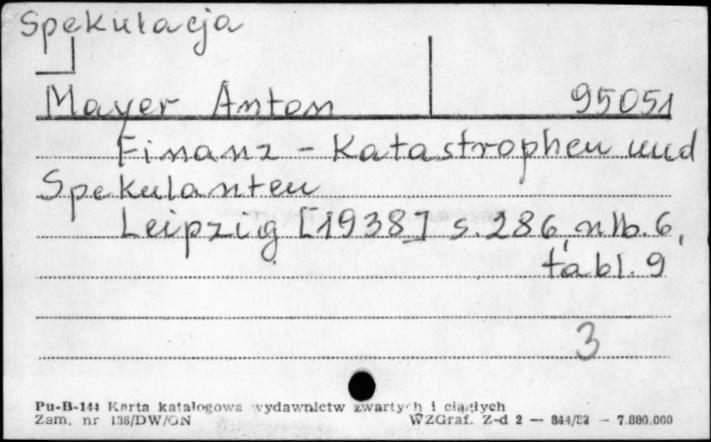 Spekulacja
Mayer Anton 95051
Finanz - Katastrophen und
Spekulanten
Leipzig [1938] s. 286, nlb. 6,
tabl. 9
3
Pu-B-144 Karta katalogowa wydawnictw zwartych i ciągłych
Zam. nr 136/DW/ON WZGraf. Z-d 2 — 844/82 — 7.000.000